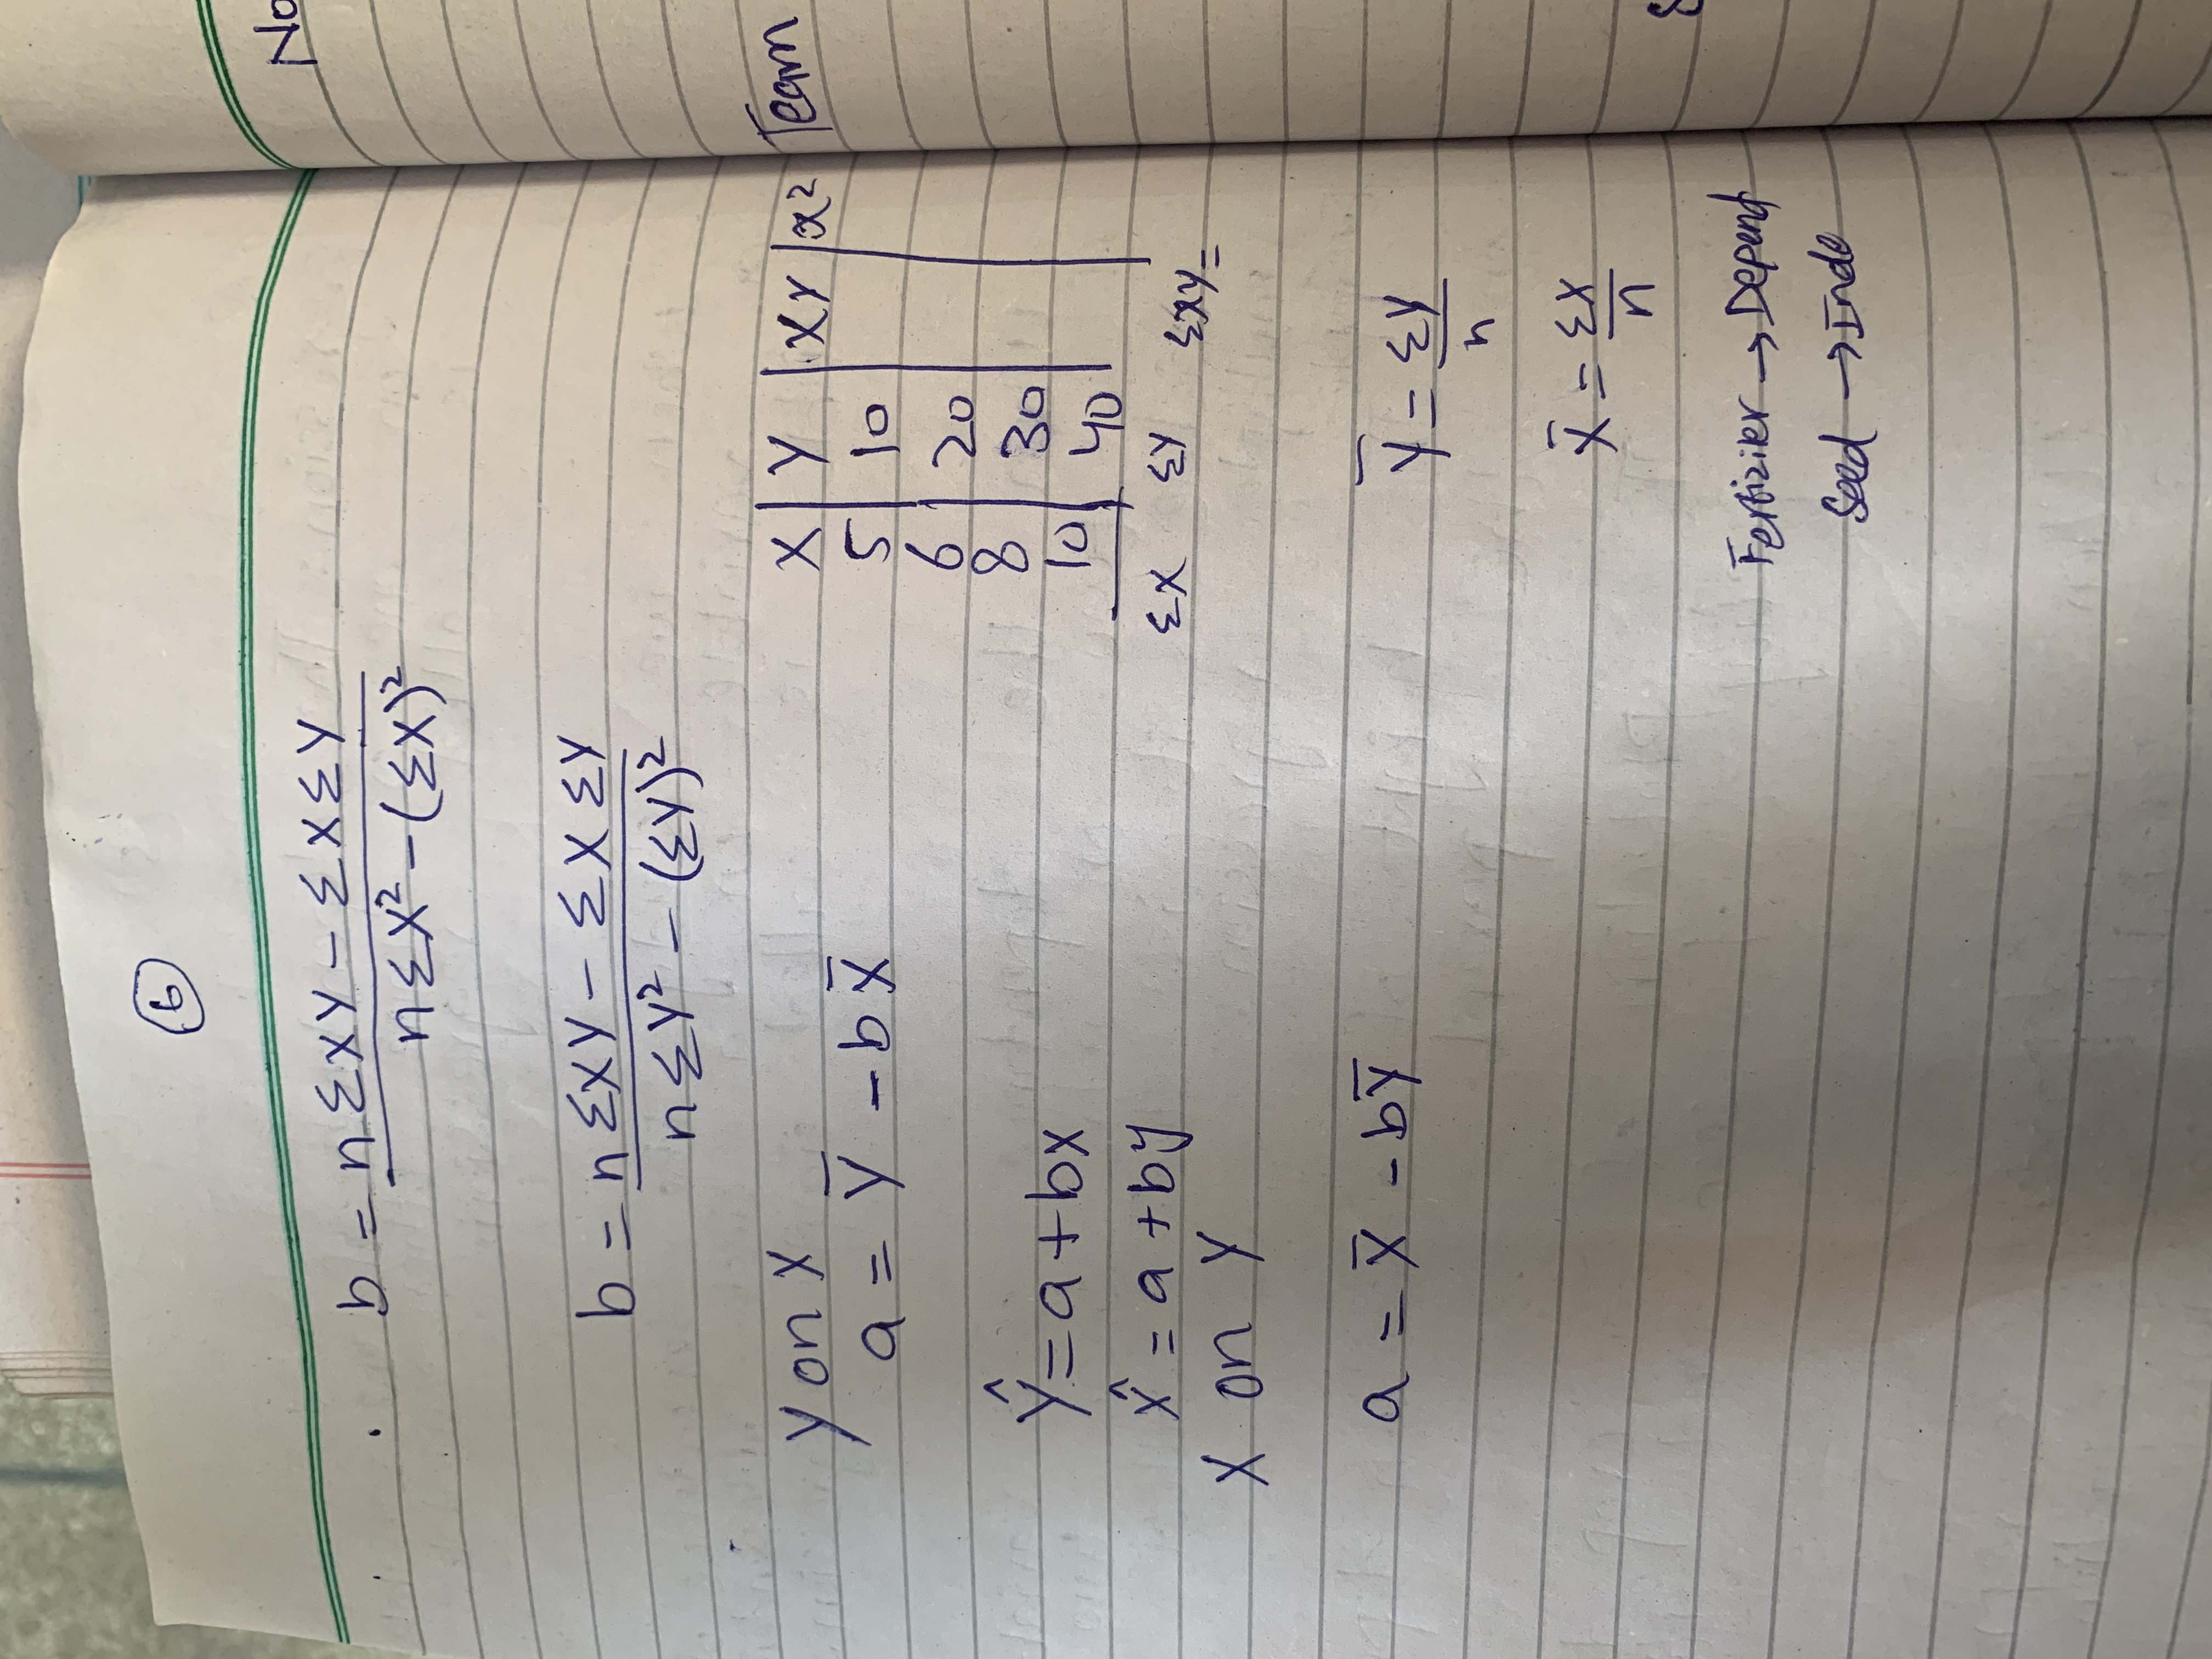 6
b = n ΣXY - ΣXΣY
nΣX² - (ΣX)²
b = n ΣXY - ΣX ΣY
n ΣY² - (ΣY)²
Y on X
a = Y̅ - b X̅
Ŷ = a + bx
X̂ = a + by
X on Y
a = X̅ - bY̅
X Y XY x²
5 10
6 20
8 30
10 40
ΣX ΣY ΣXY=
Y̅ = ΣY
n
X̅ = ΣX
n
Fertizirer → Depend
Seed → Inde
No
Team